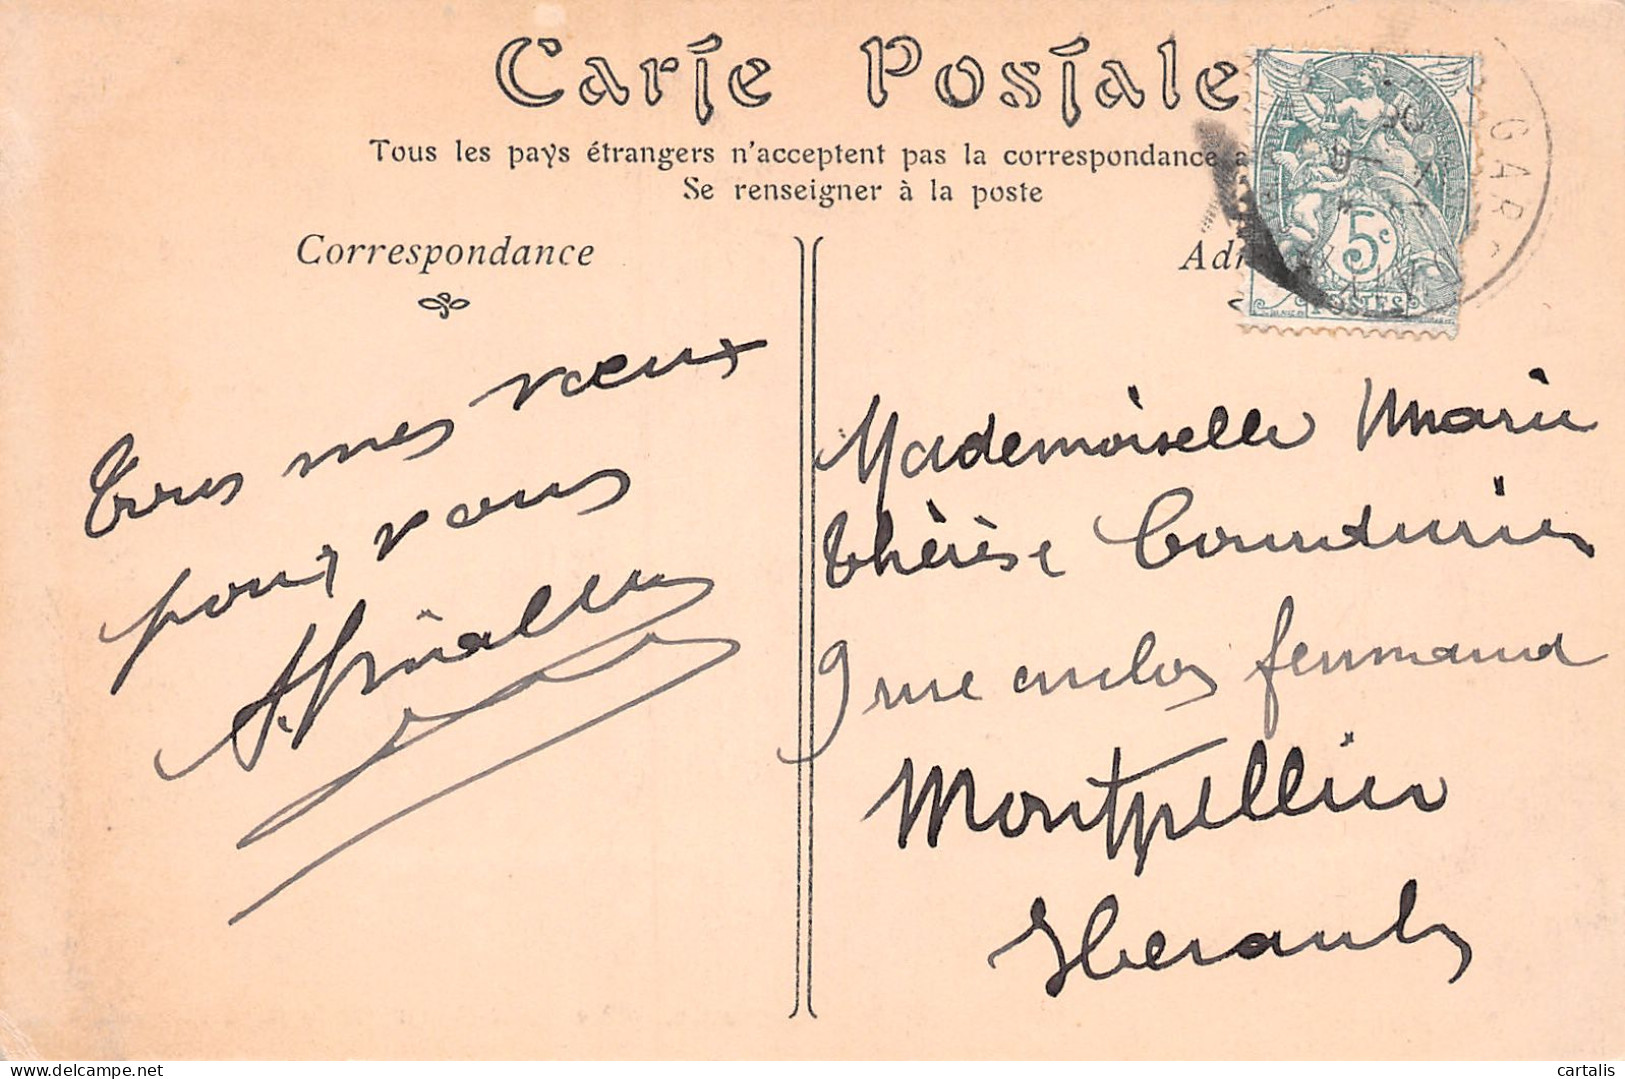 Carte Postale
Tous les pays étrangers n'acceptent pas la correspondance a
Se renseigner à la poste
Correspondance
Tous mes vœux
pour vous
Adr
5c
POSTES
GAR
Mademoiselle Marie
Thérèse Couturier
9 rue enclos fermaud
Montpellier
Herault
delcampe.net
cartalis